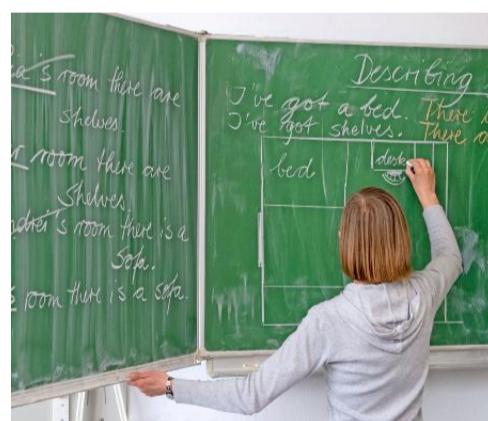 's room there are
shelves.
room there are
Shelves.
's room there is a
sofa.
room there is a sofa.
Describing
I've got a bed. There
I've got shelves. There
bed
desk